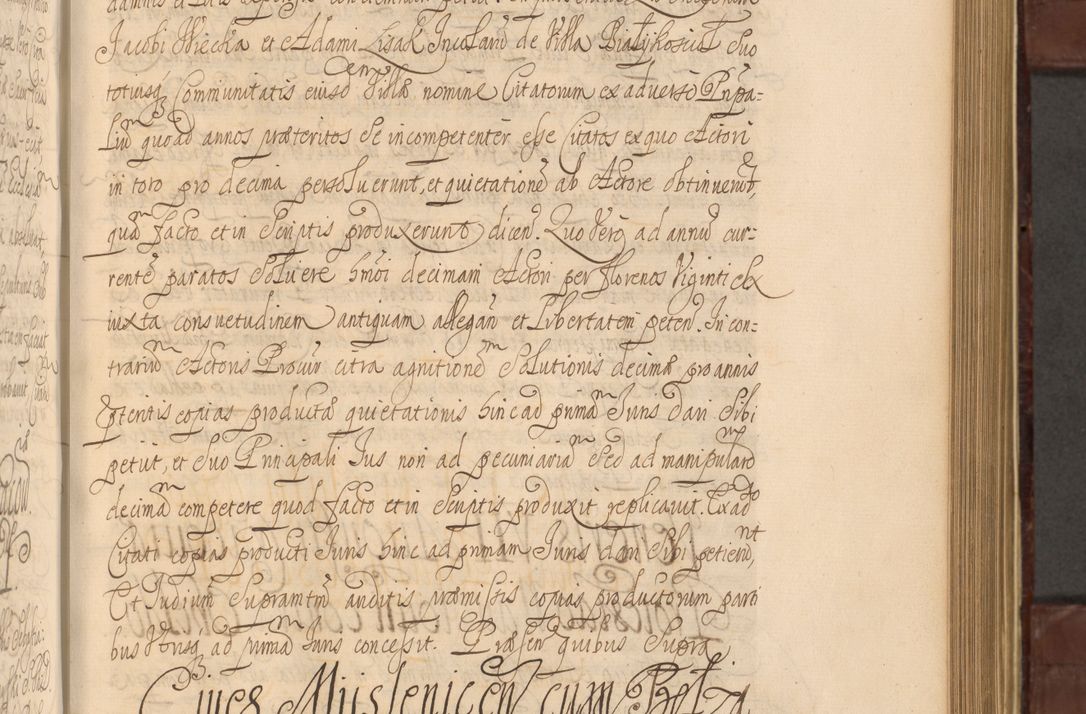 Jacobi Wiecka et Adami Lisak Incolarũ de Villa Białykoscioł suo
totiusq Communitatis eiusd Villæ nomine Citatorum ex adverso Prnpa-
liũ quoad annos præteritos se incompetenter esse Citatos ex quo Actori
in toro pro decima persoluerunt, et quietationẽ ab Actore obtinuerũt,
quã facto et in Scriptis produxerunt dicen. Quo Verò ad annũ cur-
rentẽ paratos Soluere hmoi decimam Actori per florenos Viginti ex
iuxta consuetudinem antiquam allegan et Libertatem peten. In con-
trariũ Actoris Procur citra agnitionẽ Solutionis decimæ pro annis
pteritis copias productæ quietationis hinc ad primã Iuris dari Sibi
petut, et suo Principali Ius non ad pecuniariã Sed ad manipularẽ
decimã competere quod facto et in Scriptis produxit replicavit. Ex ad
Citati copias producti Iuris hinc ad primam Iuris dari Sibi petierũt,
Et Iudiũ Supramtm auditis præmissis copias productorum parti
bus Utrisq ad primã Iuris concessit. Præsen quibus Supra
Cives Mysleniceñ cum